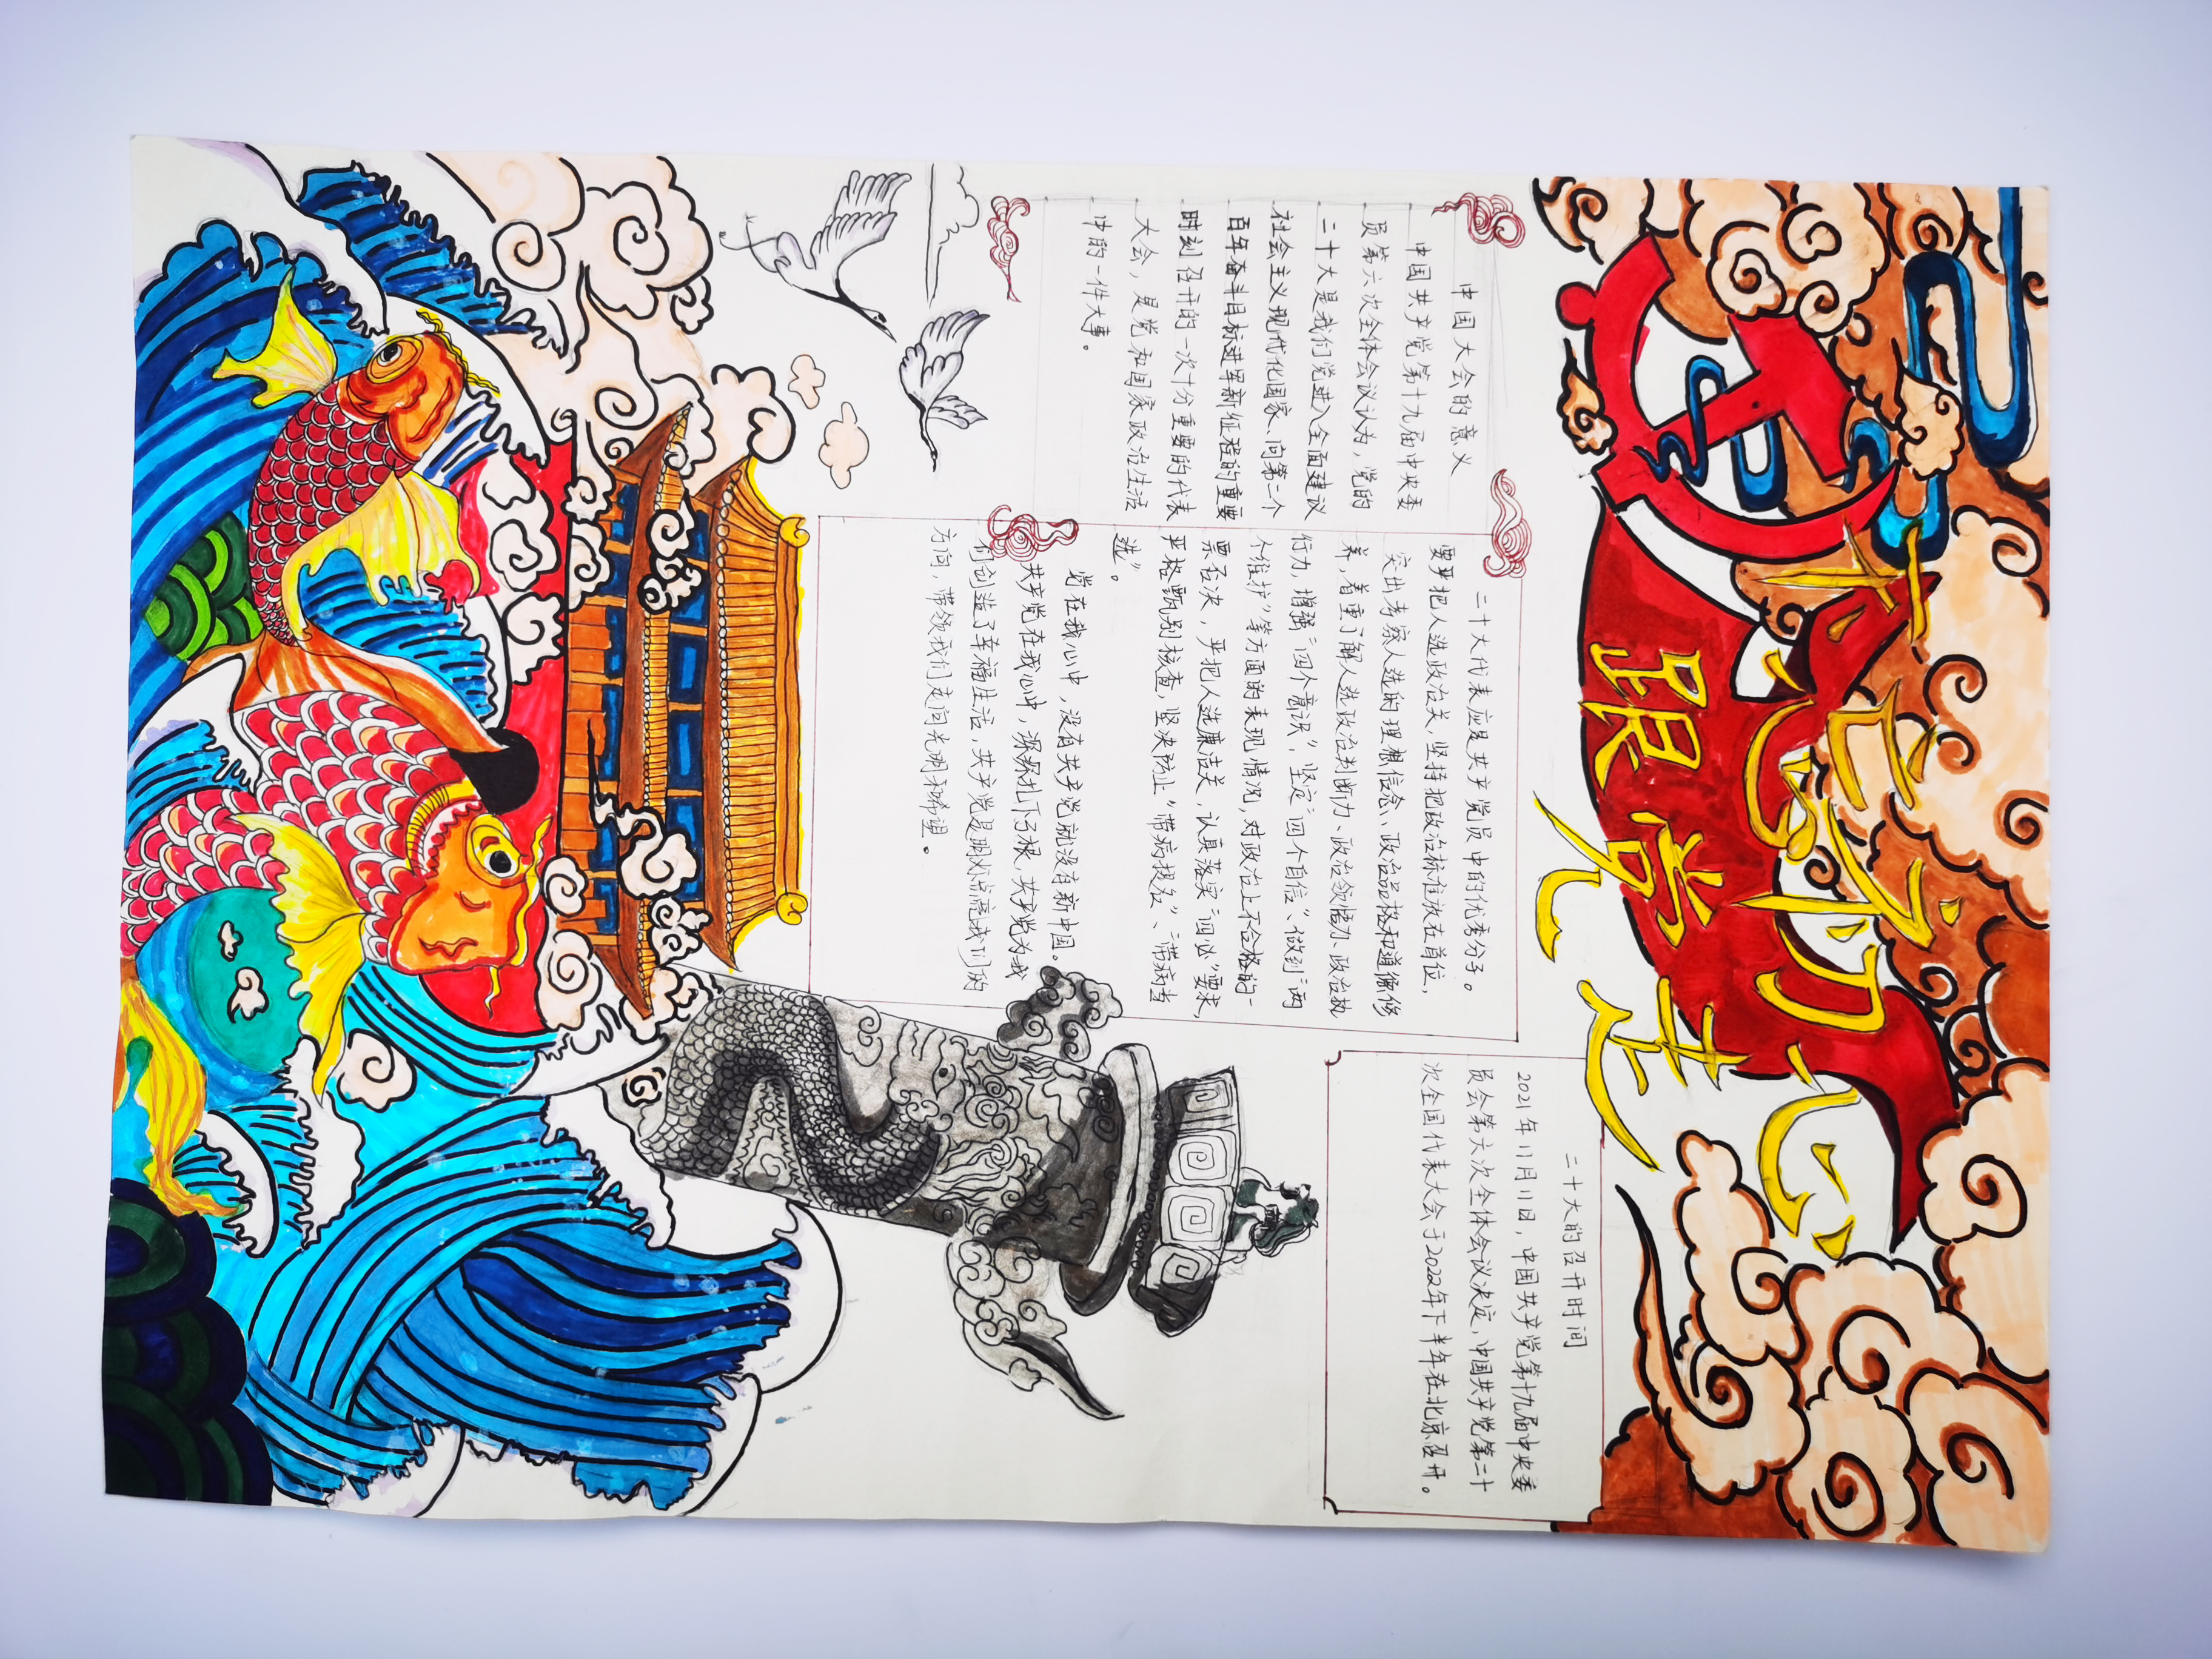 喜迎二十大
童心向党
跟党走
中国大会的意义
中国共产党第十九届中央委
员第六次全体会议认为，党的
二十大是我们党进入全面建议
社会主义现代化国家、向第二个
百年奋斗目标进军新征程的重要
时刻召开的一次十分重要的代表
大会，是党和国家政治生活
中的一件大事。
二十大代表应是共产党员中的优秀分子。
要严把人选政治关，坚持把政治标准放在首位，
突出考察人选的理想信念、政治品格和道德修
养，着重了解人选政治判断力、政治领悟力、政治执
行力，增强“四个意识”，坚定“四个自信”、做到“两
个维护”等方面的表现情况，对政治上不合格的一
票否决，严把人选廉洁关，认真落实“四必”要求，
严格甄别核查，坚决防止“带病提名”、“带病当
选”。
党在我心中，没有共产党就没有新中国。
共产党在我心中，深深扎下了根，共产党为我
们创造了幸福生活，共产党是明灯点亮我们的
方向，带领我们走向光明和希望。
二十大的召开时间
2021年11月11日，中国共产党第十九届中央委
员会第六次全体会议决定，中国共产党第二十
次全国代表大会于2022年下半年在北京召开。